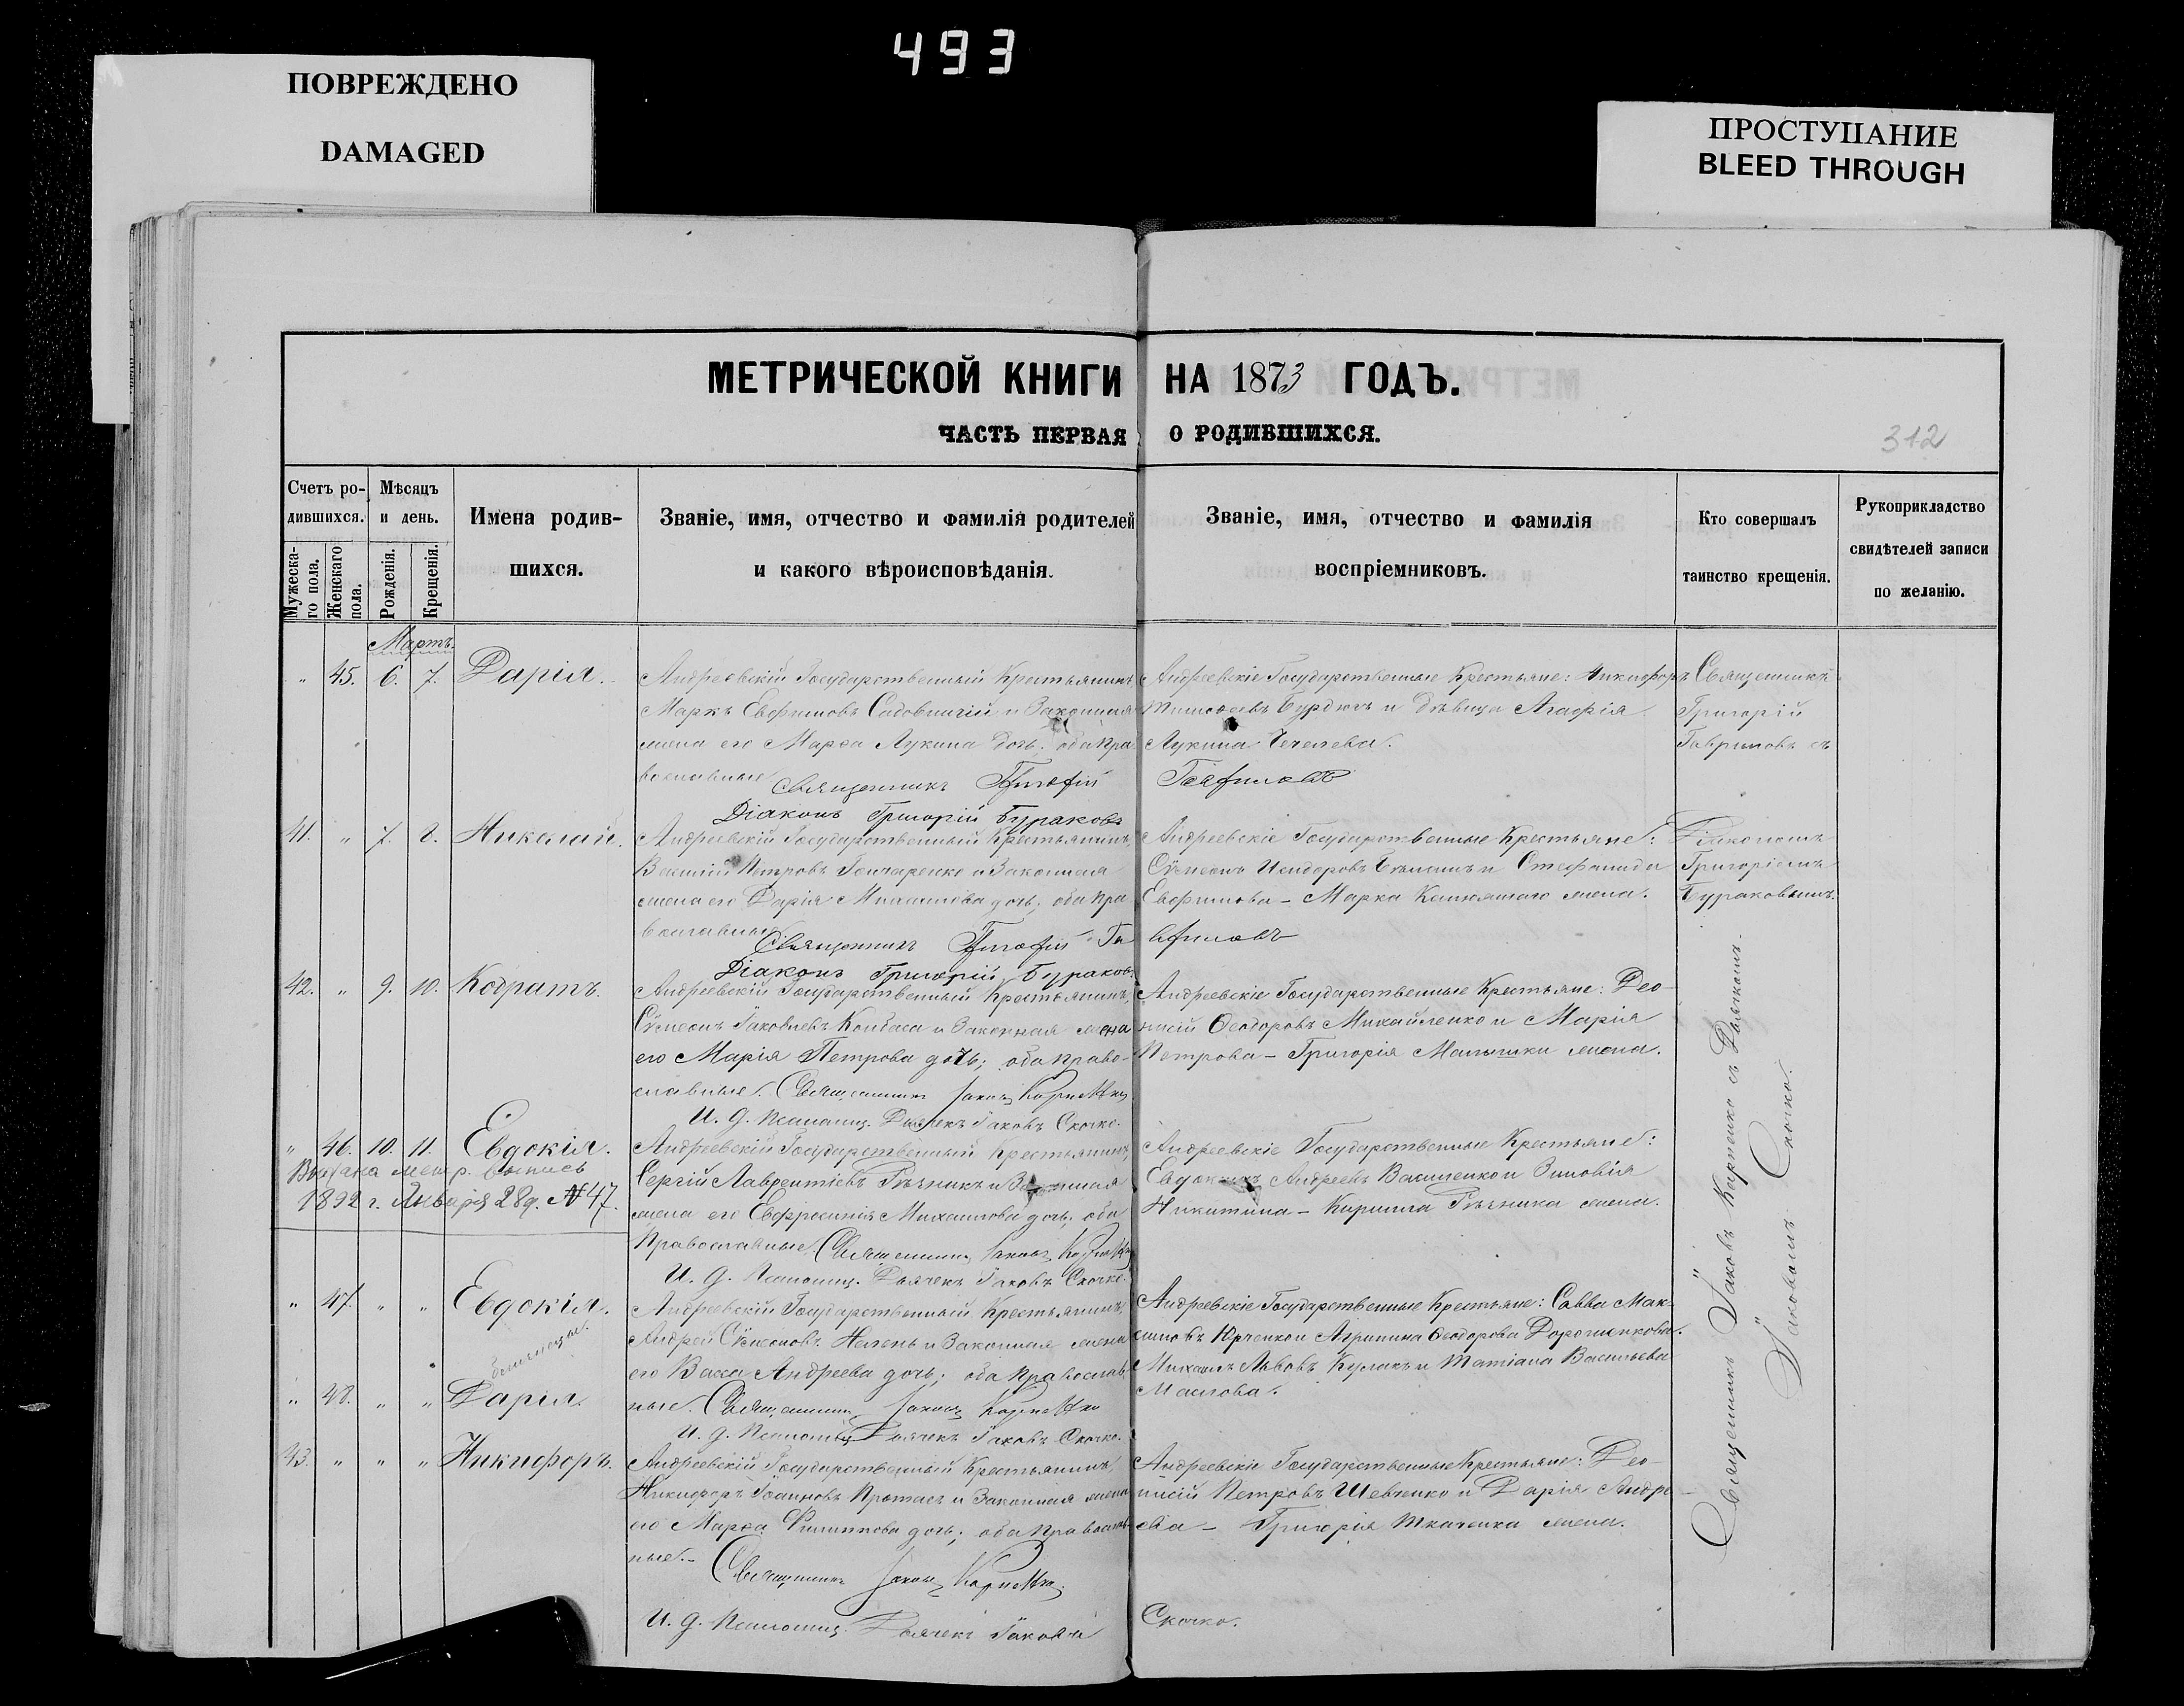 493
ПОВРЕЖДЕНО
DAMAGED
ПРОСТУПАНИЕ
BLEED THROUGH
МЕТРИЧЕСКОЙ КНИГИ НА 1873 ГОДЪ.
ЧАСТЬ ПЕРВАЯ О РОДИВШИХСЯ.
312
Счетъ ро-
дившихся.
Мужеска-
го пола.
Женскаго
пола.
Мѣсяцъ
и день.
Рожденія.
Крещенія.
Имена родив-
шихся.
Званіе, имя, отчество и фамилія родителей
и какого вѣроисповѣданія.
Званіе, имя, отчество и фамилія
воспріемниковъ.
Кто совершалъ
таинство крещенія.
Рукоприкладство
свидѣтелей записи
по желанію.
Мартъ.
" 45. 6. 7. Дарія.
Андреевскій Государственный Крестьянинъ,
Маркъ Евфимовъ Садовничій и Законная
жена его Марѳа Лукина дочь; оба пра-
вославные
Священникъ Григорій Гавриловъ
Діаконъ Григорій Бураковъ
Андреевскіе Государственные Крестьяне: Никифоръ
Тимоѳеевъ Бурдюгъ и дѣвица Агафія
Лукина
Священникъ
Григорій
Гавриловъ съ
41. " 7. 8. Николай.
Андреевскій Государственный Крестьянинъ,
Василій Петровъ Гончаренко и Законная
жена его Дарія Михаилова дочь; оба пра-
вославные
Священникъ Григорій Гавриловъ
Діаконъ Григорій Бураковъ
Андреевскіе Государственные Крестьяне:
Сѵмеонъ Исидоровъ и Стефанида
Евфимова - Марка жена.
Діакономъ
Григоріемъ
Бураковымъ.
42. " 9. 10. Кодратъ.
Андреевскій Государственный Крестьянинъ,
Сѵмеонъ Іаковлевъ Колбаса и Законная жена
его Марія Петрова дочь; оба право-
славные. Священникъ Іаковъ Карпенко
И. д. Псаломщ. Дьячекъ Іаковъ Скочко.
Андреевскіе Государственные Крестьяне: Део-
нисій Ѳеодоровъ Михайленко и Марія
Петрова - Григорія жена.
" 46. 10. 11. Евдокія.
Выдана метр. выпись
1892 г. Января 28д. №47.
Андреевскій Государственный Крестьянинъ,
Сергій Лаврентіевъ Рѣзникъ и Законная
жена его Евфросинія Михаилова дочь; оба
Православные. Священникъ Іаковъ Карпенко
И. д. Псаломщ. Дьячекъ Іаковъ Скочко.
Андреевскіе Государственные Крестьяне:
Евдокимъ Андреевъ Василенко и Зиновія
Никитина - Кирилла Рѣзника жена.
" 47. " " Евдокія.
близнецы.
" 48. " " Дарія.
Андреевскій Государственный Крестьянинъ
Андрей Сѵмеоновъ и Законная жена
его Васса Андреева дочь; оба православ-
ные. Священникъ Іаковъ Карпенко
И. д. Псаломщ. Дьячекъ Іаковъ Скочко.
Андреевскіе Государственные Крестьяне: Савва Мак-
симовъ Юрченко и Агрипина Ѳеодорова Дорошенкова.
Михаилъ Львовъ Кулакъ и Татіана Васильева
Маслова.
43. " " " Никифоръ.
Андреевскій Государственный Крестьянинъ,
Никифоръ Іоанновъ Протасъ и Законная жена
его Марѳа Филиппова дочь; оба православ-
ные. - Священникъ Іаковъ Карпенко
И. д. Псаломщ. Дьячекъ Іаковъ Скочко.
Андреевскіе Государственные Крестьяне: Део-
нисій Петровъ Шевченко и Дарія Андре-
ева - Григорія Ткаченка жена.
Священникъ Іаковъ Карпенко съ Дьячкомъ
Іаковомъ Скочко.